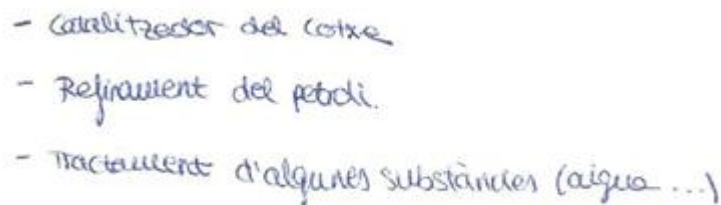 - Catalitzador del cotxe
- Refinament del petroli.
- Tractament d'algunes substàncies (aigua ...)